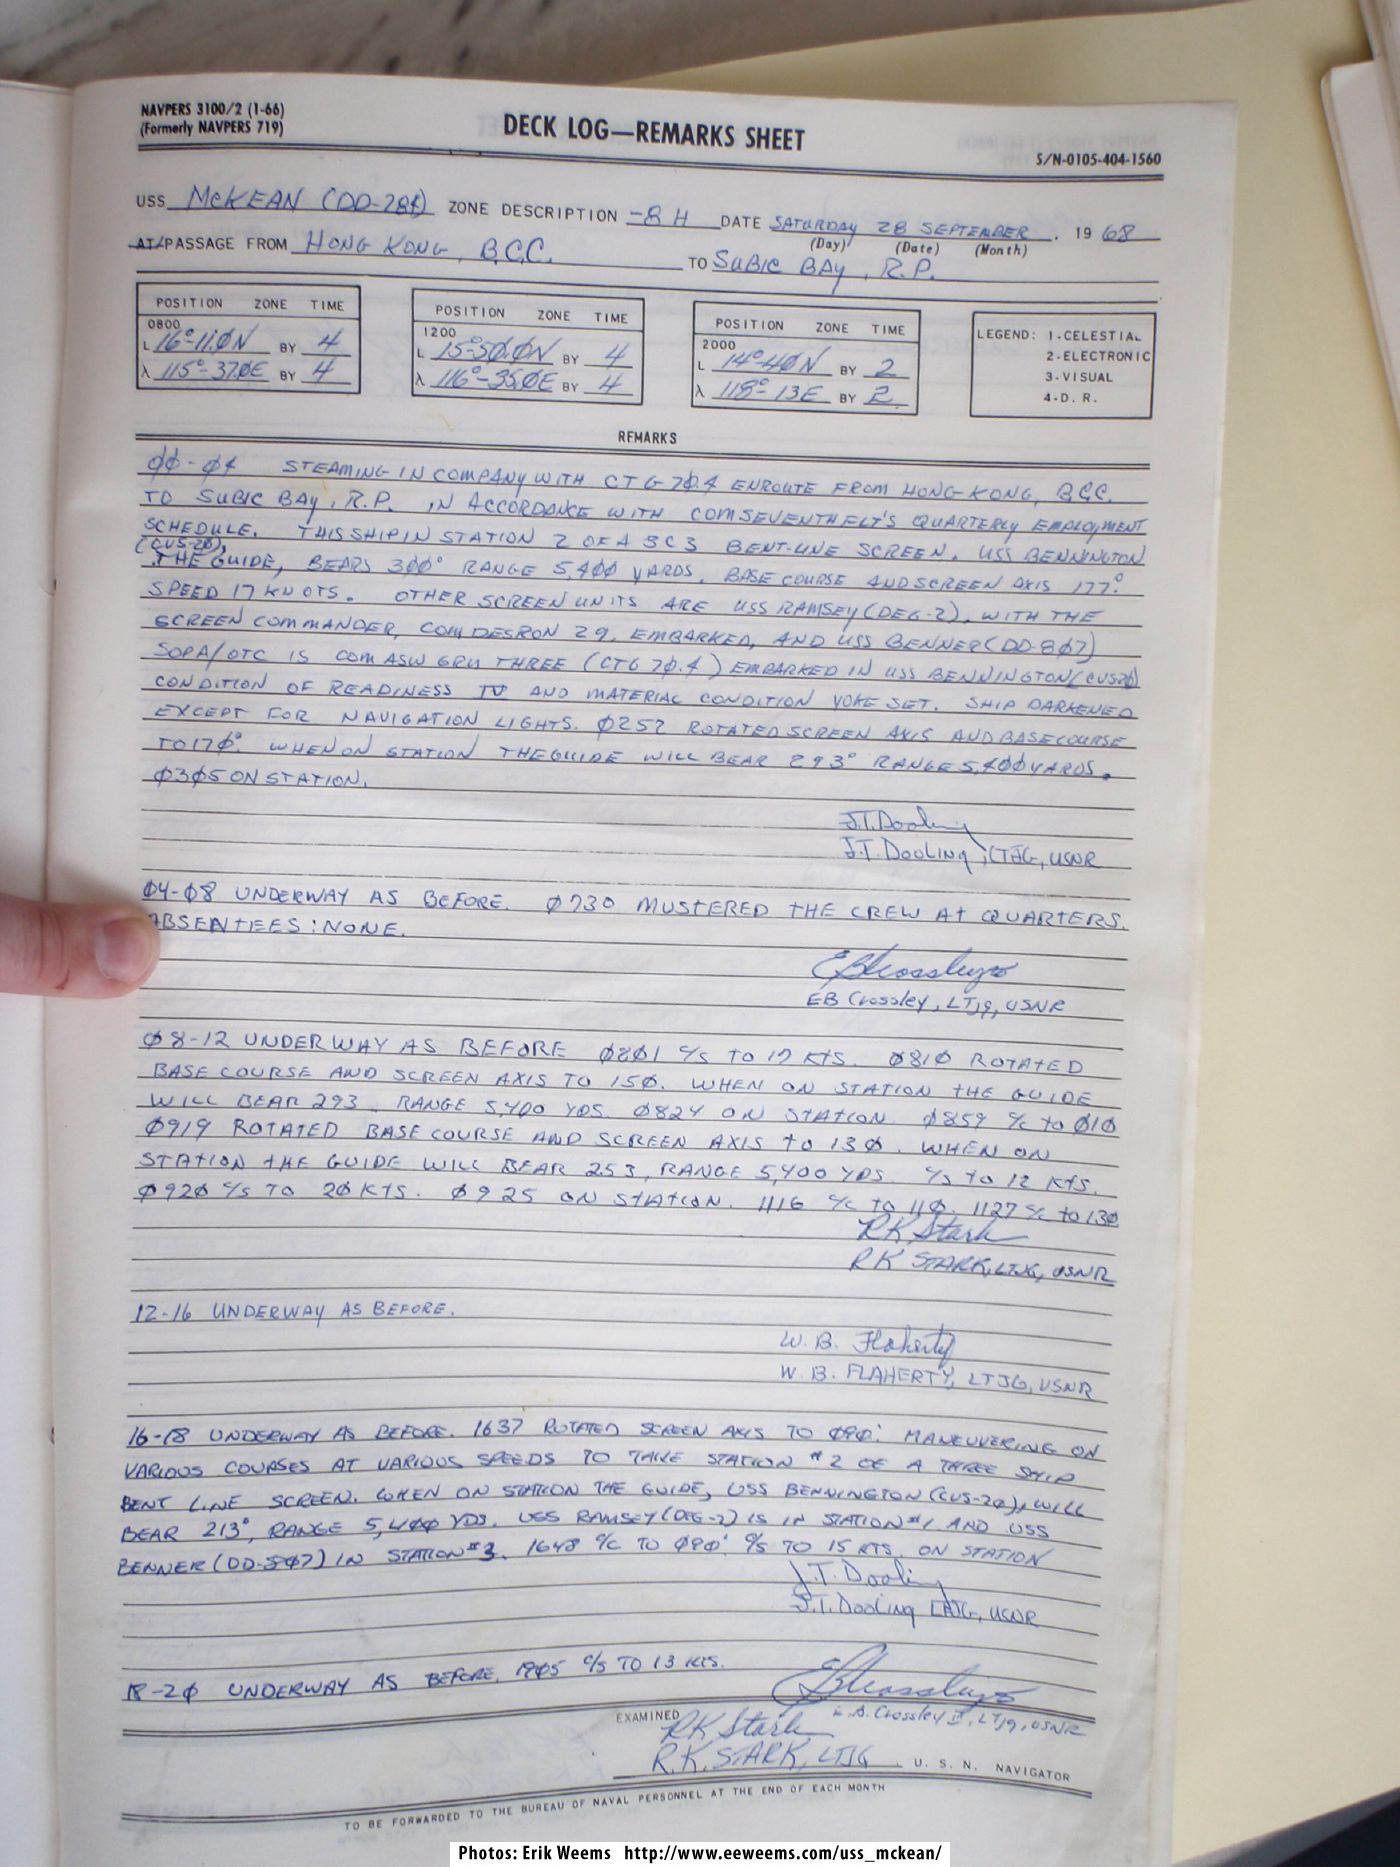 NAVPERS 3100/2 (1-66)
(Formerly NAVPERS 719)
DECK LOG—REMARKS SHEET
S/N-0105-404-1560
USS McKEAN (DD-784) ZONE DESCRIPTION -8 H DATE SATURDAY 28 SEPTEMBER, 19 68
(Day) (Date) (Month)
AT/PASSAGE FROM HONG KONG, B.C.C. TO SUBIC BAY, R.P.
POSITION ZONE TIME
0800
L 16°-11.0N BY 4
λ 115°-37.0E BY 4
POSITION ZONE TIME
1200
L 15°-50.0N BY 4
λ 116°-35.0E BY 4
POSITION ZONE TIME
2000
L 14°-40N BY 2
λ 118°-13E BY 2
LEGEND: 1-CELESTIAL
2-ELECTRONIC
3-VISUAL
4-D. R.
REMARKS
00-04 STEAMING IN COMPANY WITH CTG 70.4 ENROUTE FROM HONG KONG, BCC.
TO SUBIC BAY, R.P. IN ACCORDANCE WITH COMSEVENTHFLT'S QUARTERLY EMPLOYMENT
SCHEDULE. THIS SHIP IN STATION 2 OF A 3C3 BENT-LINE SCREEN. USS BENNINGTON
(CVS-20),
THE GUIDE, BEARS 300° RANGE 5,400 YARDS. BASE COURSE AND SCREEN AXIS 177°.
SPEED 17 KNOTS. OTHER SCREEN UNITS ARE USS RAMSEY (DEG-2), WITH THE
SCREEN COMMANDER, COMDESRON 29, EMBARKED, AND USS BENNER (DD-807)
SOPA/OTC IS COMASWGRU THREE (CTG 70.4) EMBARKED IN USS BENNINGTON (CVS20)
CONDITION OF READINESS IV AND MATERIAL CONDITION YOKE SET. SHIP DARKENED
EXCEPT FOR NAVIGATION LIGHTS. 0252 ROTATED SCREEN AXIS AND BASE COURSE
TO 170°. WHEN ON STATION THE GUIDE WILL BEAR 293° RANGE 5,400 YARDS.
0305 ON STATION.
J.T. Dooling
J.T. Dooling, LTJG, USNR
04-08 UNDERWAY AS BEFORE. 0730 MUSTERED THE CREW AT QUARTERS.
ABSENTEES: NONE.
EB Crossley
EB Crossley, LTjg, USNR
08-12 UNDERWAY AS BEFORE 0801 C/S TO 17 KTS. 0810 ROTATED
BASE COURSE AND SCREEN AXIS TO 150. WHEN ON STATION THE GUIDE
WILL BEAR 293, RANGE 5,400 YDS. 0824 ON STATION. 0859 C/C to 010
0919 ROTATED BASE COURSE AND SCREEN AXIS to 130. WHEN ON
STATION THE GUIDE WILL BEAR 253, RANGE 5,400 YDS. C/S to 12 KTS.
0920 C/S TO 20 KTS. 0925 ON STATION. 1116 C/C TO 110. 1127 C/C to 130
RK Stark
RK STARK, LTJG, USNR
12-16 UNDERWAY AS BEFORE.
W. B. Flaherty
W. B. FLAHERTY, LTJG, USNR
16-18 UNDERWAY AS BEFORE. 1637 ROTATED SCREEN AXIS TO 090°. MANEUVERING ON
VARIOUS COURSES AT VARIOUS SPEEDS TO TAKE STATION #2 OF A THREE SHIP
BENT LINE SCREEN. WHEN ON STATION THE GUIDE, USS BENNINGTON (CVS-20), WILL
BEAR 213°, RANGE 5,400 YDS. USS RAMSEY (DEG-2) IS IN STATION #1 AND USS
BENNER (DD-807) IN STATION #3. 1648 C/C TO 090° C/S TO 15 KTS. ON STATION
J.T. Dooling
J.T. Dooling LTJG, USNR
18-20 UNDERWAY AS BEFORE. 1905 C/S TO 13 KTS.
EB Crossley
E.B. Crossley II, LTjg, USNR
EXAMINED
RK Stark
R.K. STARK, LTJG, U. S. N. NAVIGATOR
TO BE FORWARDED TO THE BUREAU OF NAVAL PERSONNEL AT THE END OF EACH MONTH
Photos: Erik Weems http://www.eeweems.com/uss_mckean/